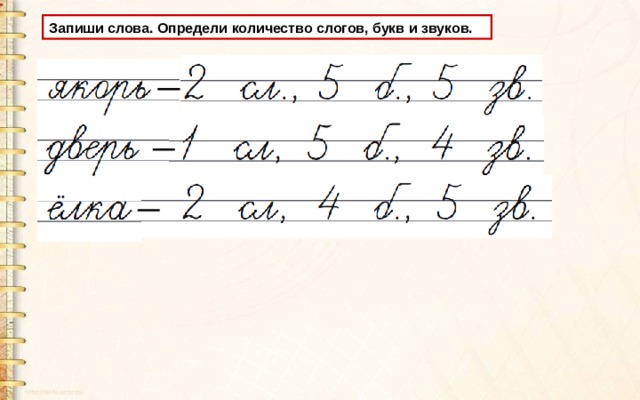 Запиши слова. Определи количество слогов, букв и звуков.
якорь – 2 сл., 5 б., 5 зв.
дверь – 1 сл, 5 б., 4 зв.
ёлка – 2 сл, 4 б., 5 зв.